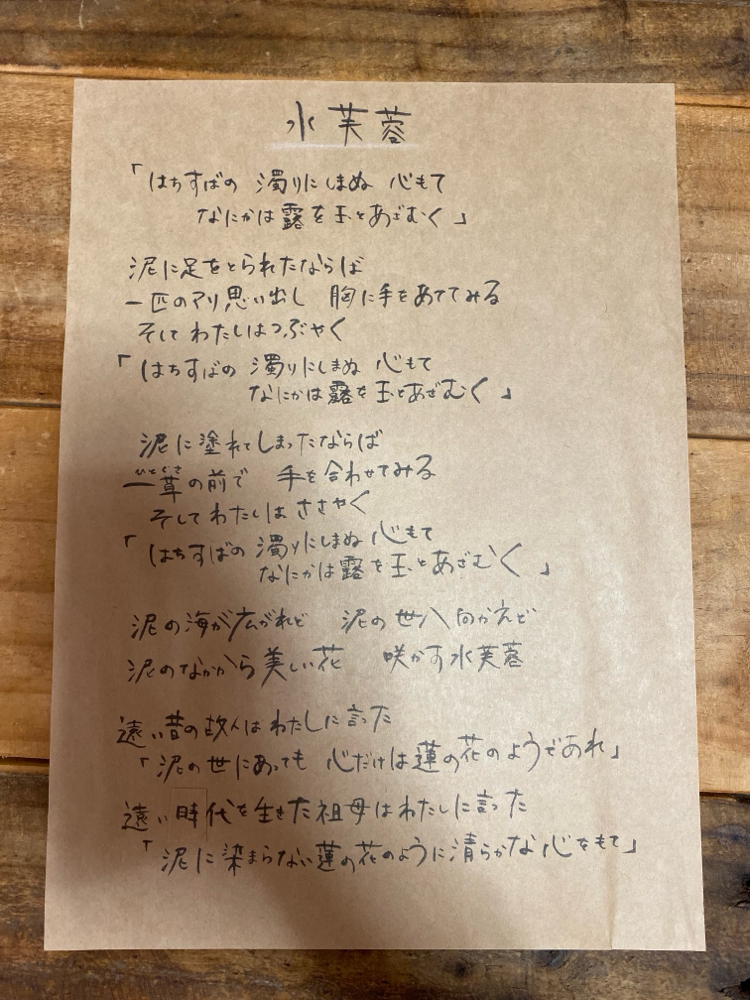 水芙蓉
「はちすばの 濁りにしまぬ 心もて
なにかは露を玉とあざむく」
泥に足をとられたならば
一匹のアリ思い出し 胸に手をあててみる
そしてわたしはつぶやく
「はちすばの 濁りにしまぬ 心もて
なにかは露を玉とあざむく」
泥に塗れてしまったならば
ひとくさ
一草の前で 手を合わせてみる
そしてわたしはささやく
「はちすばの 濁りにしまぬ 心もて
なにかは露を玉とあざむく」
泥の海が広がれど 泥の世へ向かえど
泥のなかから美しい花 咲かす水芙蓉
遠い昔の故人はわたしに言った
「泥の世にあっても 心だけは蓮の花のようであれ」
遠い時代を生きた祖母はわたしに言った
「泥に染まらない蓮の花のように清らかな心をもて」